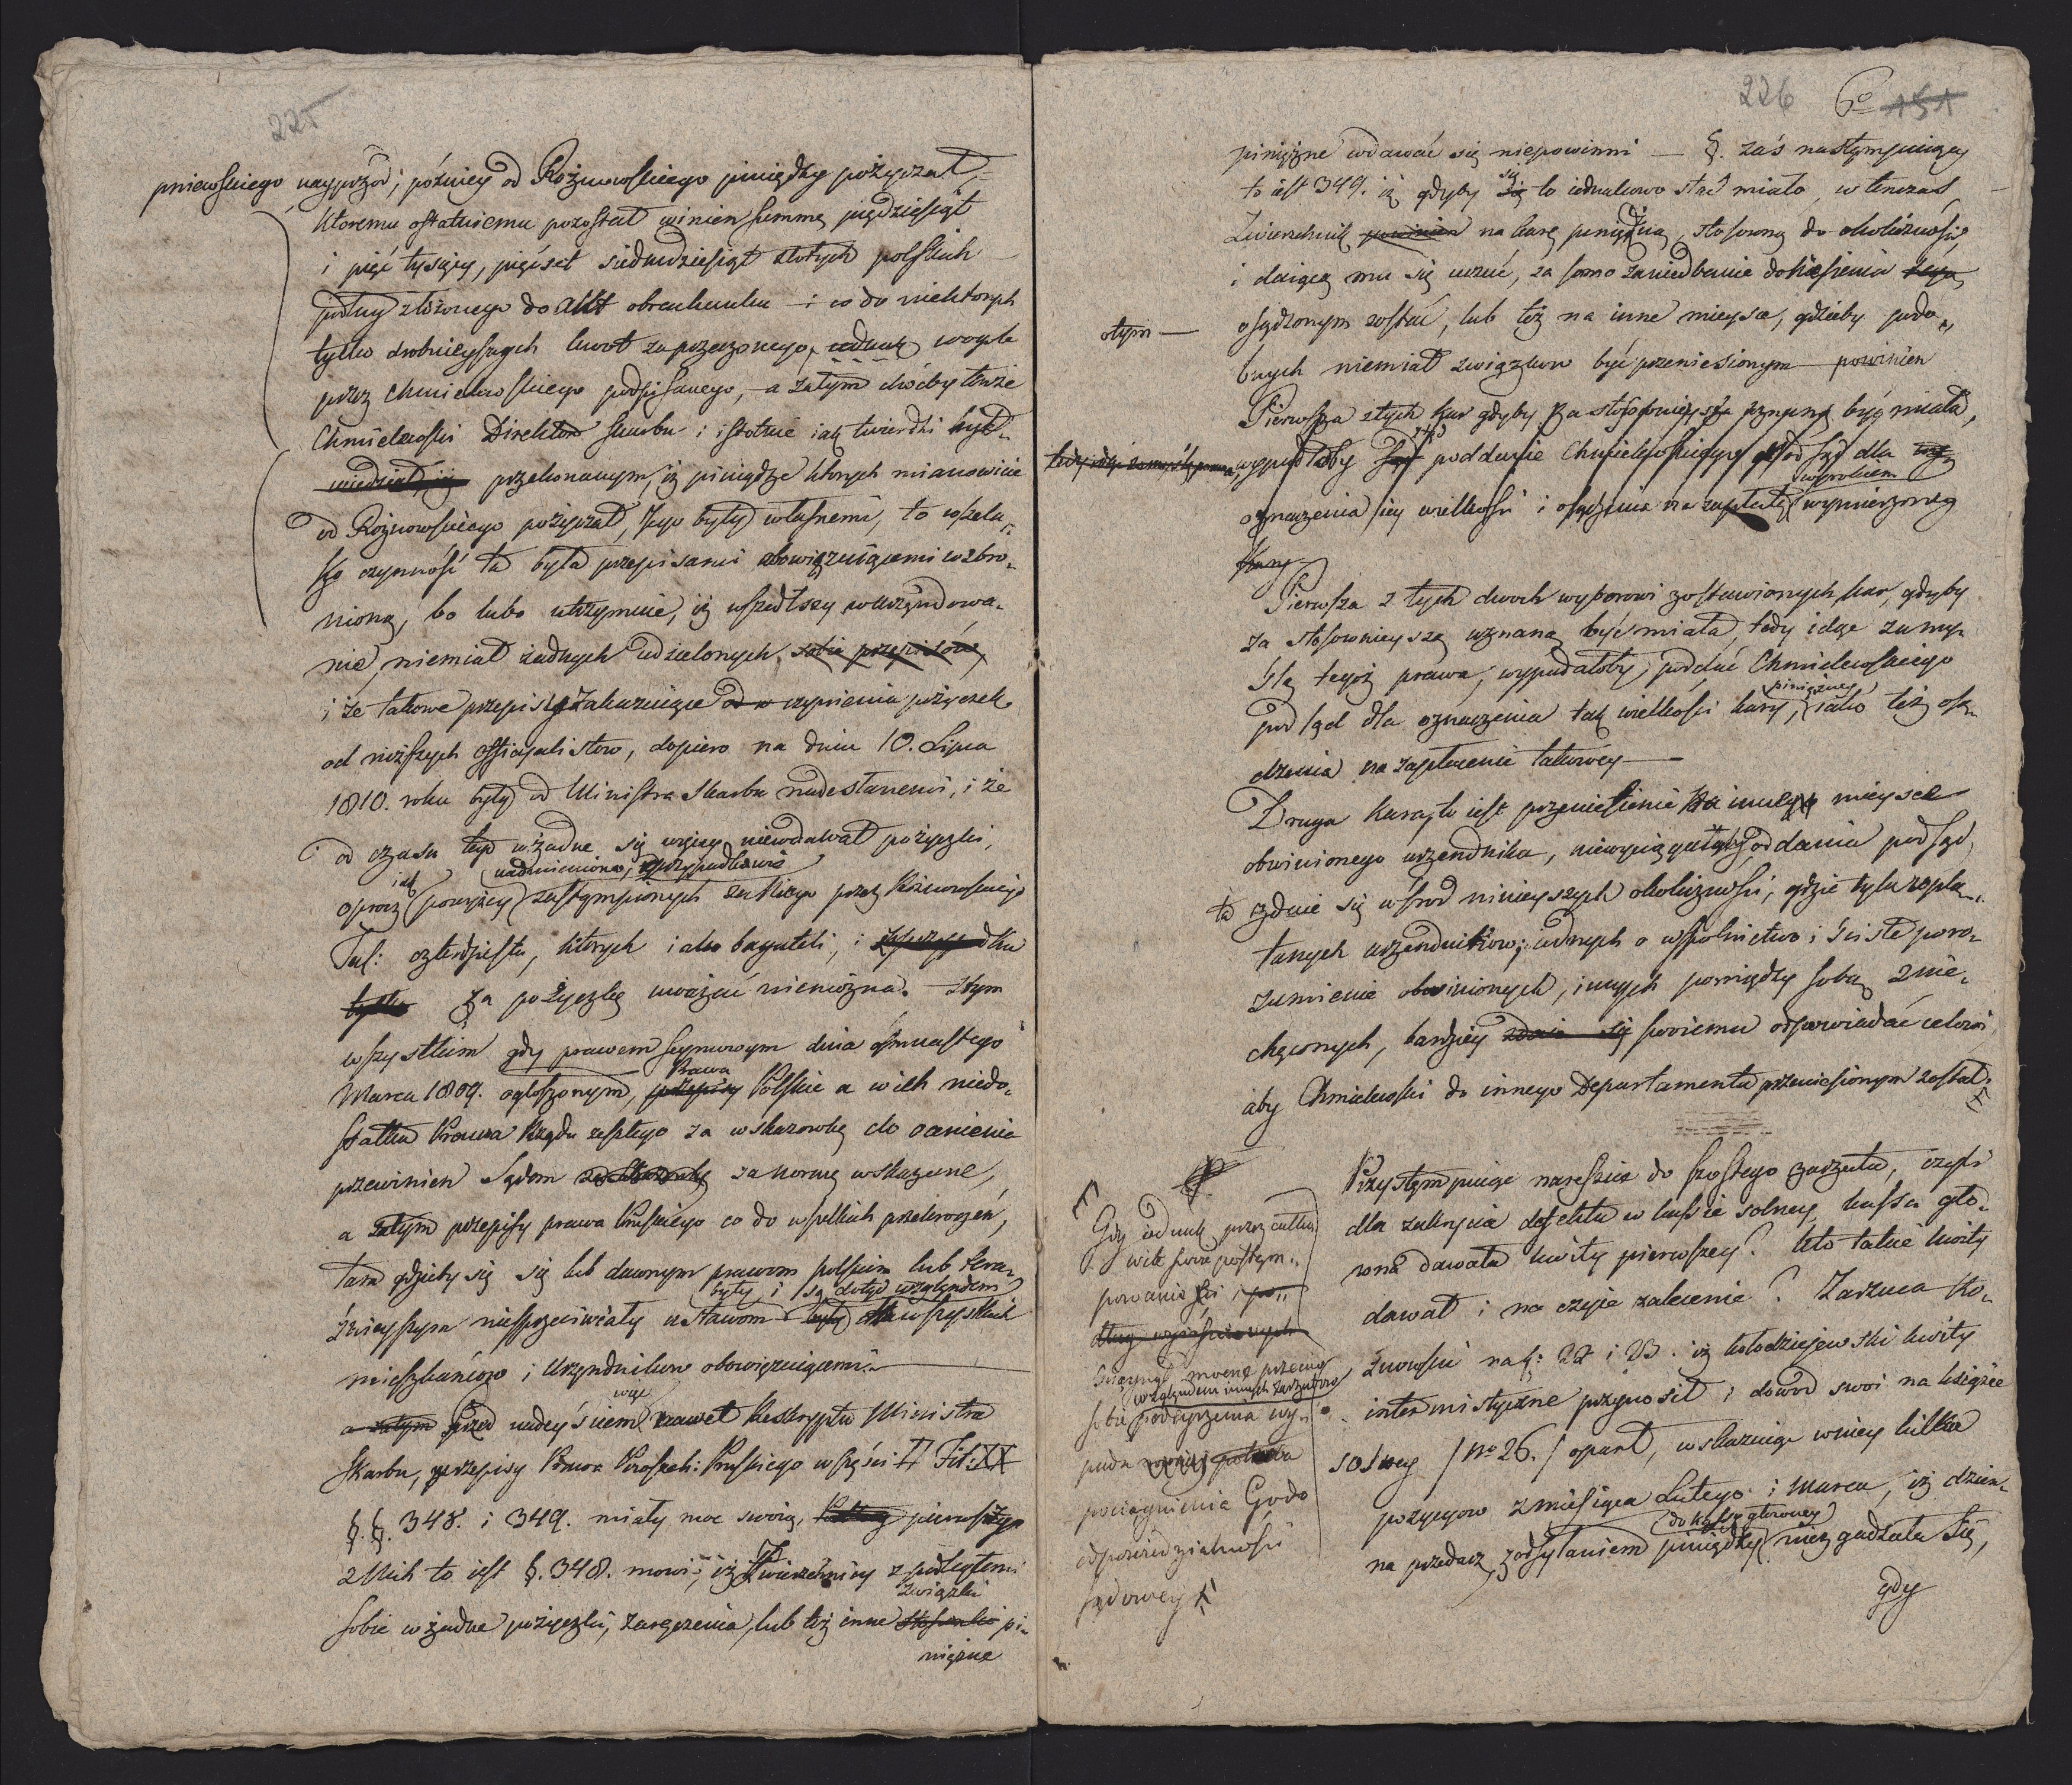 225
pniewskiego naypzod; pozniey od Rożnowskiego pieniędzy pożyczał,
ktoremu ostatniemu pozostał winien summę pięćdziesiąt
i pięć tysięcy, pięćset siedmdziesiąt złotych polskich
podług złożonego do Akt obrachunku – i co do niektorych
tylko drobnieyszych kwot zaprzeczonego, iednak wogule
przez Chmielewskiego podpisanego, – a zatym choćby tenże
Chmielewski Direktor Skarbu i istotnie iak twierdzi był
wiedział, iż przekonanym, iż pieniądze ktorych mianowicie
od Rożnowskiego pożyczał, Jego były własnemi, to wszela-
ko czynność ta była przepisami obowięzuiącemi wzbro-
nioną, bo lubo utrzymuie, iż wszedłszy w urzędowa-
nie, niemiał żadnych udzielonych sobie przepisów,
i że takowe przepisy zakazuiące od w czynienia pożyczek
od niższych officyalistow, dopiero na dniu 10. Lipca
1810. roku były od Ministra Skarbu nadesłanemi, i że
od czasu tego w żadne się więcey niewdawał pożyczki,
nadmieniono, w przypadkowie
oprocz iak powyżey zastąmpionych za Niego przez Rożnowskiego
Tal: czterdziestu, ktorych iako bagateli, i
tylko za pożyczkę uważać niemożna. Ztym
wszystkim gdy prawem seymowym dnia ośmnastego
Marca 1809. ogłoszonym, przepisy Prawa Polskie a wich niedo-
statku Prawa Rządu zeszłego za wskazowkę do ocenienia
przewinien Sądom za normę wskazane,
a zatym przepisy prawa Pruskiego co do wszelkich przekroczeń,
tam gdzieby się się lub dawnym prawom polskim lub tera-
źnieyszym niesprzeciwiały ustawom były były i są dotąd względem wszystkich
mieszkańcow i Urzędnikow obowięzuiącemi.
a zatym Przed nadeyściem więc nawet Reskryptu Ministra
Skarbu, przepisy Prawa Powszech: Pruskiego w części II Tit: XX
§. §. 348. i 349. miały moc swoią, pierwszy
z Nich to iest §. 348. mowi, iż Zwierzchnicy z podległemi
sobie w żadne pożyczki, zaręczenia, lub też inne stosunki związki pi-
niężne
226 6º 151
pinięzne wdawać się niepowinni — §. zaś nastęmpuiący
to iest 349. iż gdyby się to iednakowo stać miało, wtenczas
Zwierzchnik powinien na karę pinięzną, stosowną do okoliczności
i daiącą mu się uczuć, za samo zaniedbanie doniesienia tego
otym — osądzonym zostać, lub też na inne mieysce, gdzieby podo-
bnych niemiał związkow być przeniesionym powinien
Pierwsza z tych kar gdyby za stosownieyszą uznaną być miała,
wypadałoby poddanie Chmielewskiego pod sąd dla
oznaczenia iey wielkości i osądzenia na zapłatę wyrokiem wymierzoney
kary
Pierwsza z tych dwoch wyborowi zostawionych kar, gdyby
za stosownieyszą uznaną być miała, tedy idąc za my-
ślą tegoż prawa, wypadałoby, poddać Chmielewskiego
pod sąd dla oznaczenia tak wielkości kary, piniężney iako też osą-
dzenia na zapłacenie takowey —
Druga kara, to iest przeniesienie na inne mieysce
obwinionego urzendnika, niewyciągałaby oddania pod sąd,
ta zdaie się wśrod ninieyszych okoliczności, gdzie tylu zaplą-
tanych urzendnikow; iednych o wspolnictwo i ścisłe poro-
zumienie obwinionych, innych pomiędzy sobą znie-
chęconych, bardziey zdaie się swoiemu odpowiadać celowi
aby Chmielewski do innego Departamentu przeniesionym został.
Gdy iednak przez całkowite swoie postęm-
powanie
ściągnął mocne przeciw
względem innych zarzutow
sobie podeyrzenia wy-
pada
pociągnienia Go do
odpowiedzialności
sądowey
Przystęmpuiąc nareszcie do szostego zarzutu, czyli
dla zakrycia defektu w kassie solney, kassa gło-
wna dawała kwity pierwszey? kto takie kwity
dawał i na czyie zalecenie? Zarzuca Ro-
żnowski na f: 22 i 23. iż Kołodziejewski kwity
intermistyczne przynosił i dowod swoi na księdze
solney /No 26./ oparł, wskazuiąc wniey kilka
pozycyow z miesiąca Lutego i Marca, iż dzien-
na przedarz z odsyłaniem pieniędzy do kassy głowney niezgadzała się,
gdy